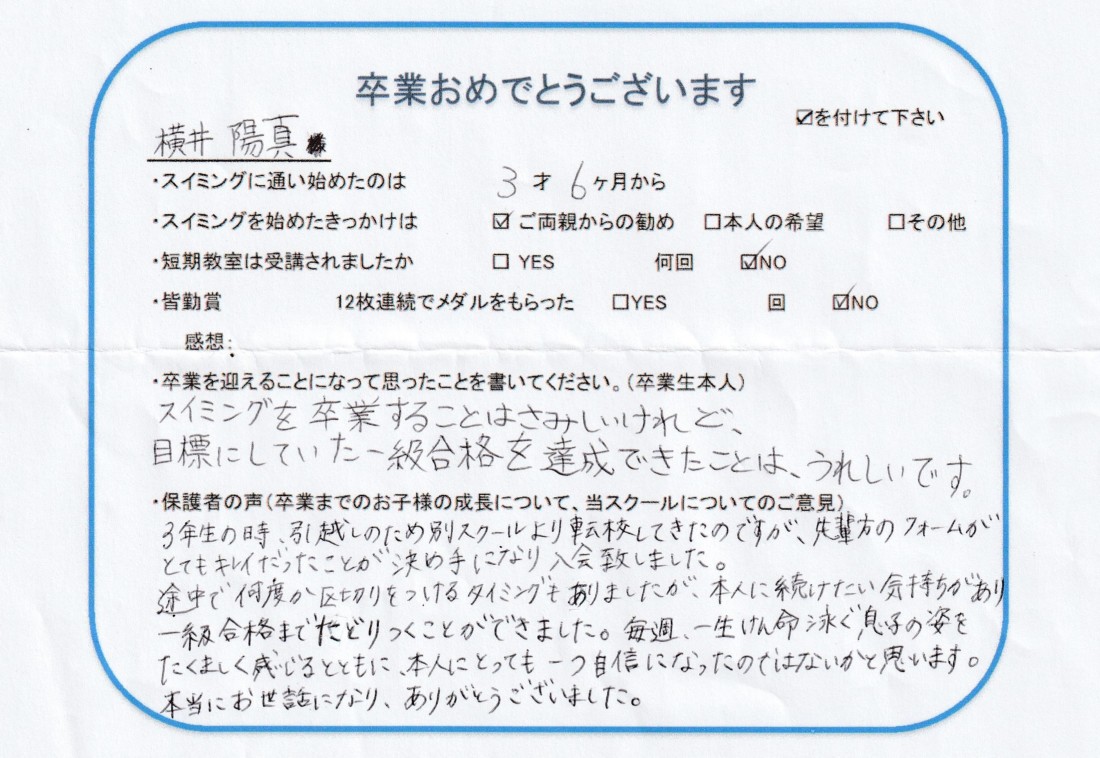 卒業おめでとうございます
☑を付けて下さい
横井 陽真 様
・スイミングに通い始めたのは 3 才 6 ヶ月から
・スイミングを始めたきっかけは ☑ ご両親からの勧め □本人の希望 □その他
・短期教室は受講されましたか □ YES 何回 ☑NO
・皆勤賞 12枚連続でメダルをもらった □YES 回 ☑NO
感想:
・卒業を迎えることになって思ったことを書いてください。(卒業生本人)
スイミングを卒業することはさみしいけれど、
目標にしていた一級合格を達成できたことは、うれしいです。
・保護者の声(卒業までのお子様の成長について、当スクールについてのご意見)
3年生の時、引越しのため別スクールより転校してきたのですが、先輩方のフォームが
とてもキレイだったことが決め手になり入会致しました。
途中で何度か区切りをつけるタイミングもありましたが、本人に続けたい気持ちがあり
一級合格までたどりつくことができました。毎週、一生けん命泳ぐ息子の姿を
たくましく感じるとともに、本人にとっても一つ自信になったのではないかと思います。
本当にお世話になり、ありがとうございました。